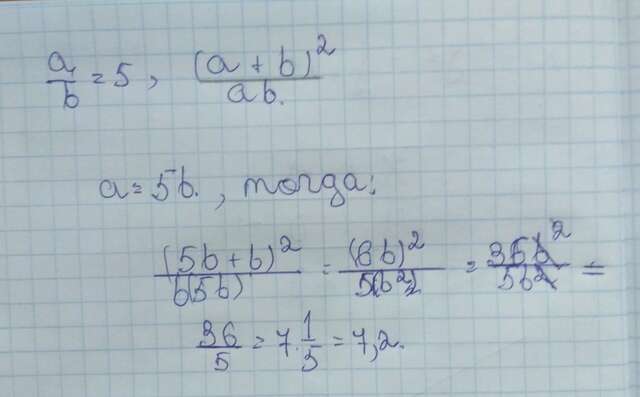 a/b = 5, (a + b)²/ab.
a = 5b., тогда:
(5b + b)²/b(5b) = (6b)²/5(b²) = 36b²/5b² =
36/5 = 7 1/5 = 7,2.